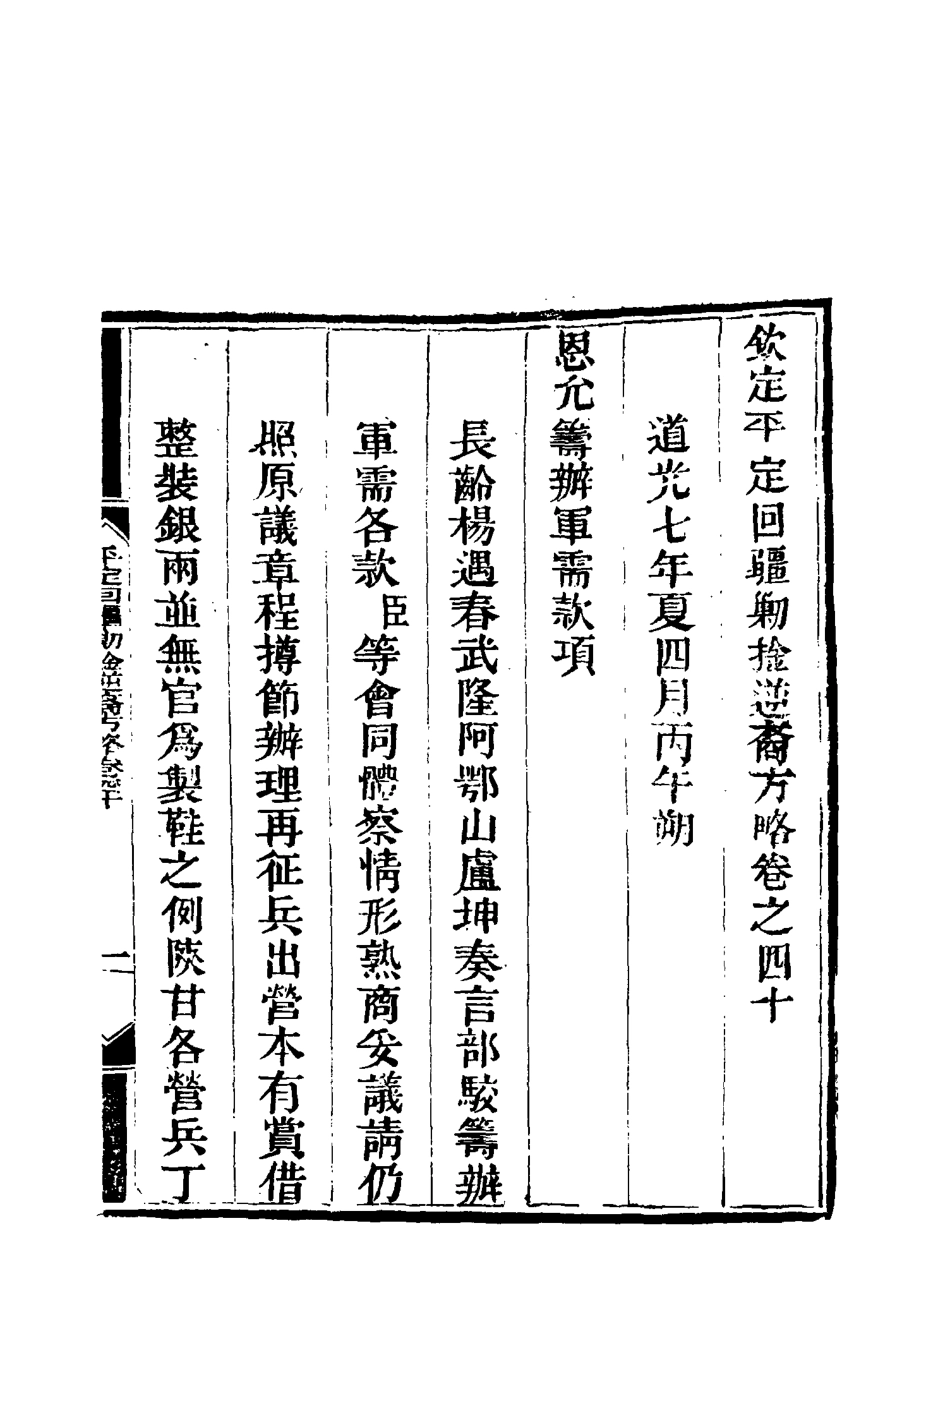 欽定平定回疆勦捡逆裔方略卷之四十
道光七年夏四月丙午朔
恩允籌辦軍需款項
長齡楊遇春武隆阿鄂山盧坤奏言部駮籌辦
軍需各款臣等會同體察情形熟商妥議請仍
照原議章程撙節辦理再征兵出營本有賞借
整裝銀兩並無官爲製鞋之例陝甘各營兵丁
一